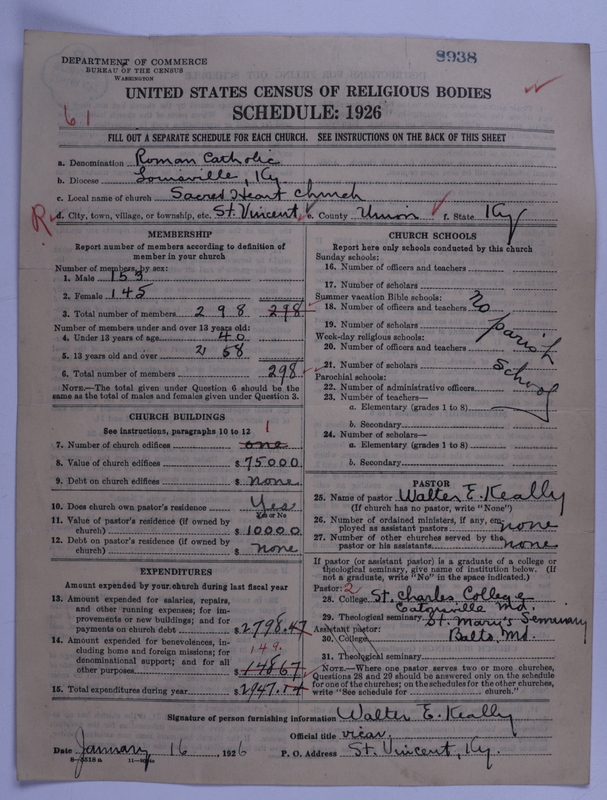 8938
DEPARTMENT OF COMMERCE
BUREAU OF THE CENSUS
WASHINGTON
UNITED STATES CENSUS OF RELIGIOUS BODIES
SCHEDULE: 1926
61
FILL OUT A SEPARATE SCHEDULE FOR EACH CHURCH. SEE INSTRUCTIONS ON THE BACK OF THIS SHEET
a. Denomination Roman Catholic
b. Diocese Louisville, Ky.
c. Local name of church Sacred Heart Church
R d. City, town, village, or township, etc. St. Vincent e. County Union f. State Ky
MEMBERSHIP
Report number of members according to definition of member in your church
Number of members, by sex:
1. Male 153
2. Female 145
3. Total number of members 298 298
Number of members under and over 13 years old:
4. Under 13 years of age 40
5. 13 years old and over 258
6. Total number of members 298
NOTE.—The total given under Question 6 should be the same as the total of males and females given under Question 3.
CHURCH BUILDINGS
See instructions, paragraphs 10 to 12
7. Number of church edifices one 1
8. Value of church edifices $ 75000.
9. Debt on church edifices $ None
10. Does church own pastor's residence Yes
Yes or No
11. Value of pastor's residence (if owned by church) $ 10000
12. Debt on pastor's residence (if owned by church) $ None
EXPENDITURES
Amount expended by your church during last fiscal year
13. Amount expended for salaries, repairs, and other running expenses; for improvements or new buildings; and for payments on church debt $ 2798.47
14. Amount expended for benevolences, including home and foreign missions; for denominational support; and for all other purposes 149. $ 148.67
15. Total expenditures during year $ 2947.14
CHURCH SCHOOLS
Report here only schools conducted by this church
Sunday schools:
16. Number of officers and teachers
17. Number of scholars
Summer vacation Bible schools:
18. Number of officers and teachers
19. Number of scholars
Week-day religious schools:
20. Number of officers and teachers
21. Number of scholars
Parochial schools:
22. Number of administrative officers
23. Number of teachers—
a. Elementary (grades 1 to 8)
b. Secondary
24. Number of scholars—
a. Elementary (grades 1 to 8)
b. Secondary
No parish school
PASTOR
25. Name of pastor Walter E. Keally
(If church has no pastor, write "None")
26. Number of ordained ministers, if any, employed as assistant pastors none
27. Number of other churches served by the pastor or his assistants none
If pastor (or assistant pastor) is a graduate of a college or theological seminary, give name of institution below. (If not a graduate, write "No" in the space indicated.)
Pastor: 2
28. College St. Charles College
Catonsville Md.
29. Theological seminary St. Mary's Seminary
Assistant pastor: Balto. Md.
30. College
31. Theological seminary
NOTE.—Where one pastor serves two or more churches, Questions 28 and 29 should be answered only on the schedule for one of the churches; on the schedules for the other churches, write "See schedule for church."
Signature of person furnishing information Walter E. Keally
Official title vicar.
Date January 16, 1926 P. O. Address St. Vincent, Ky.